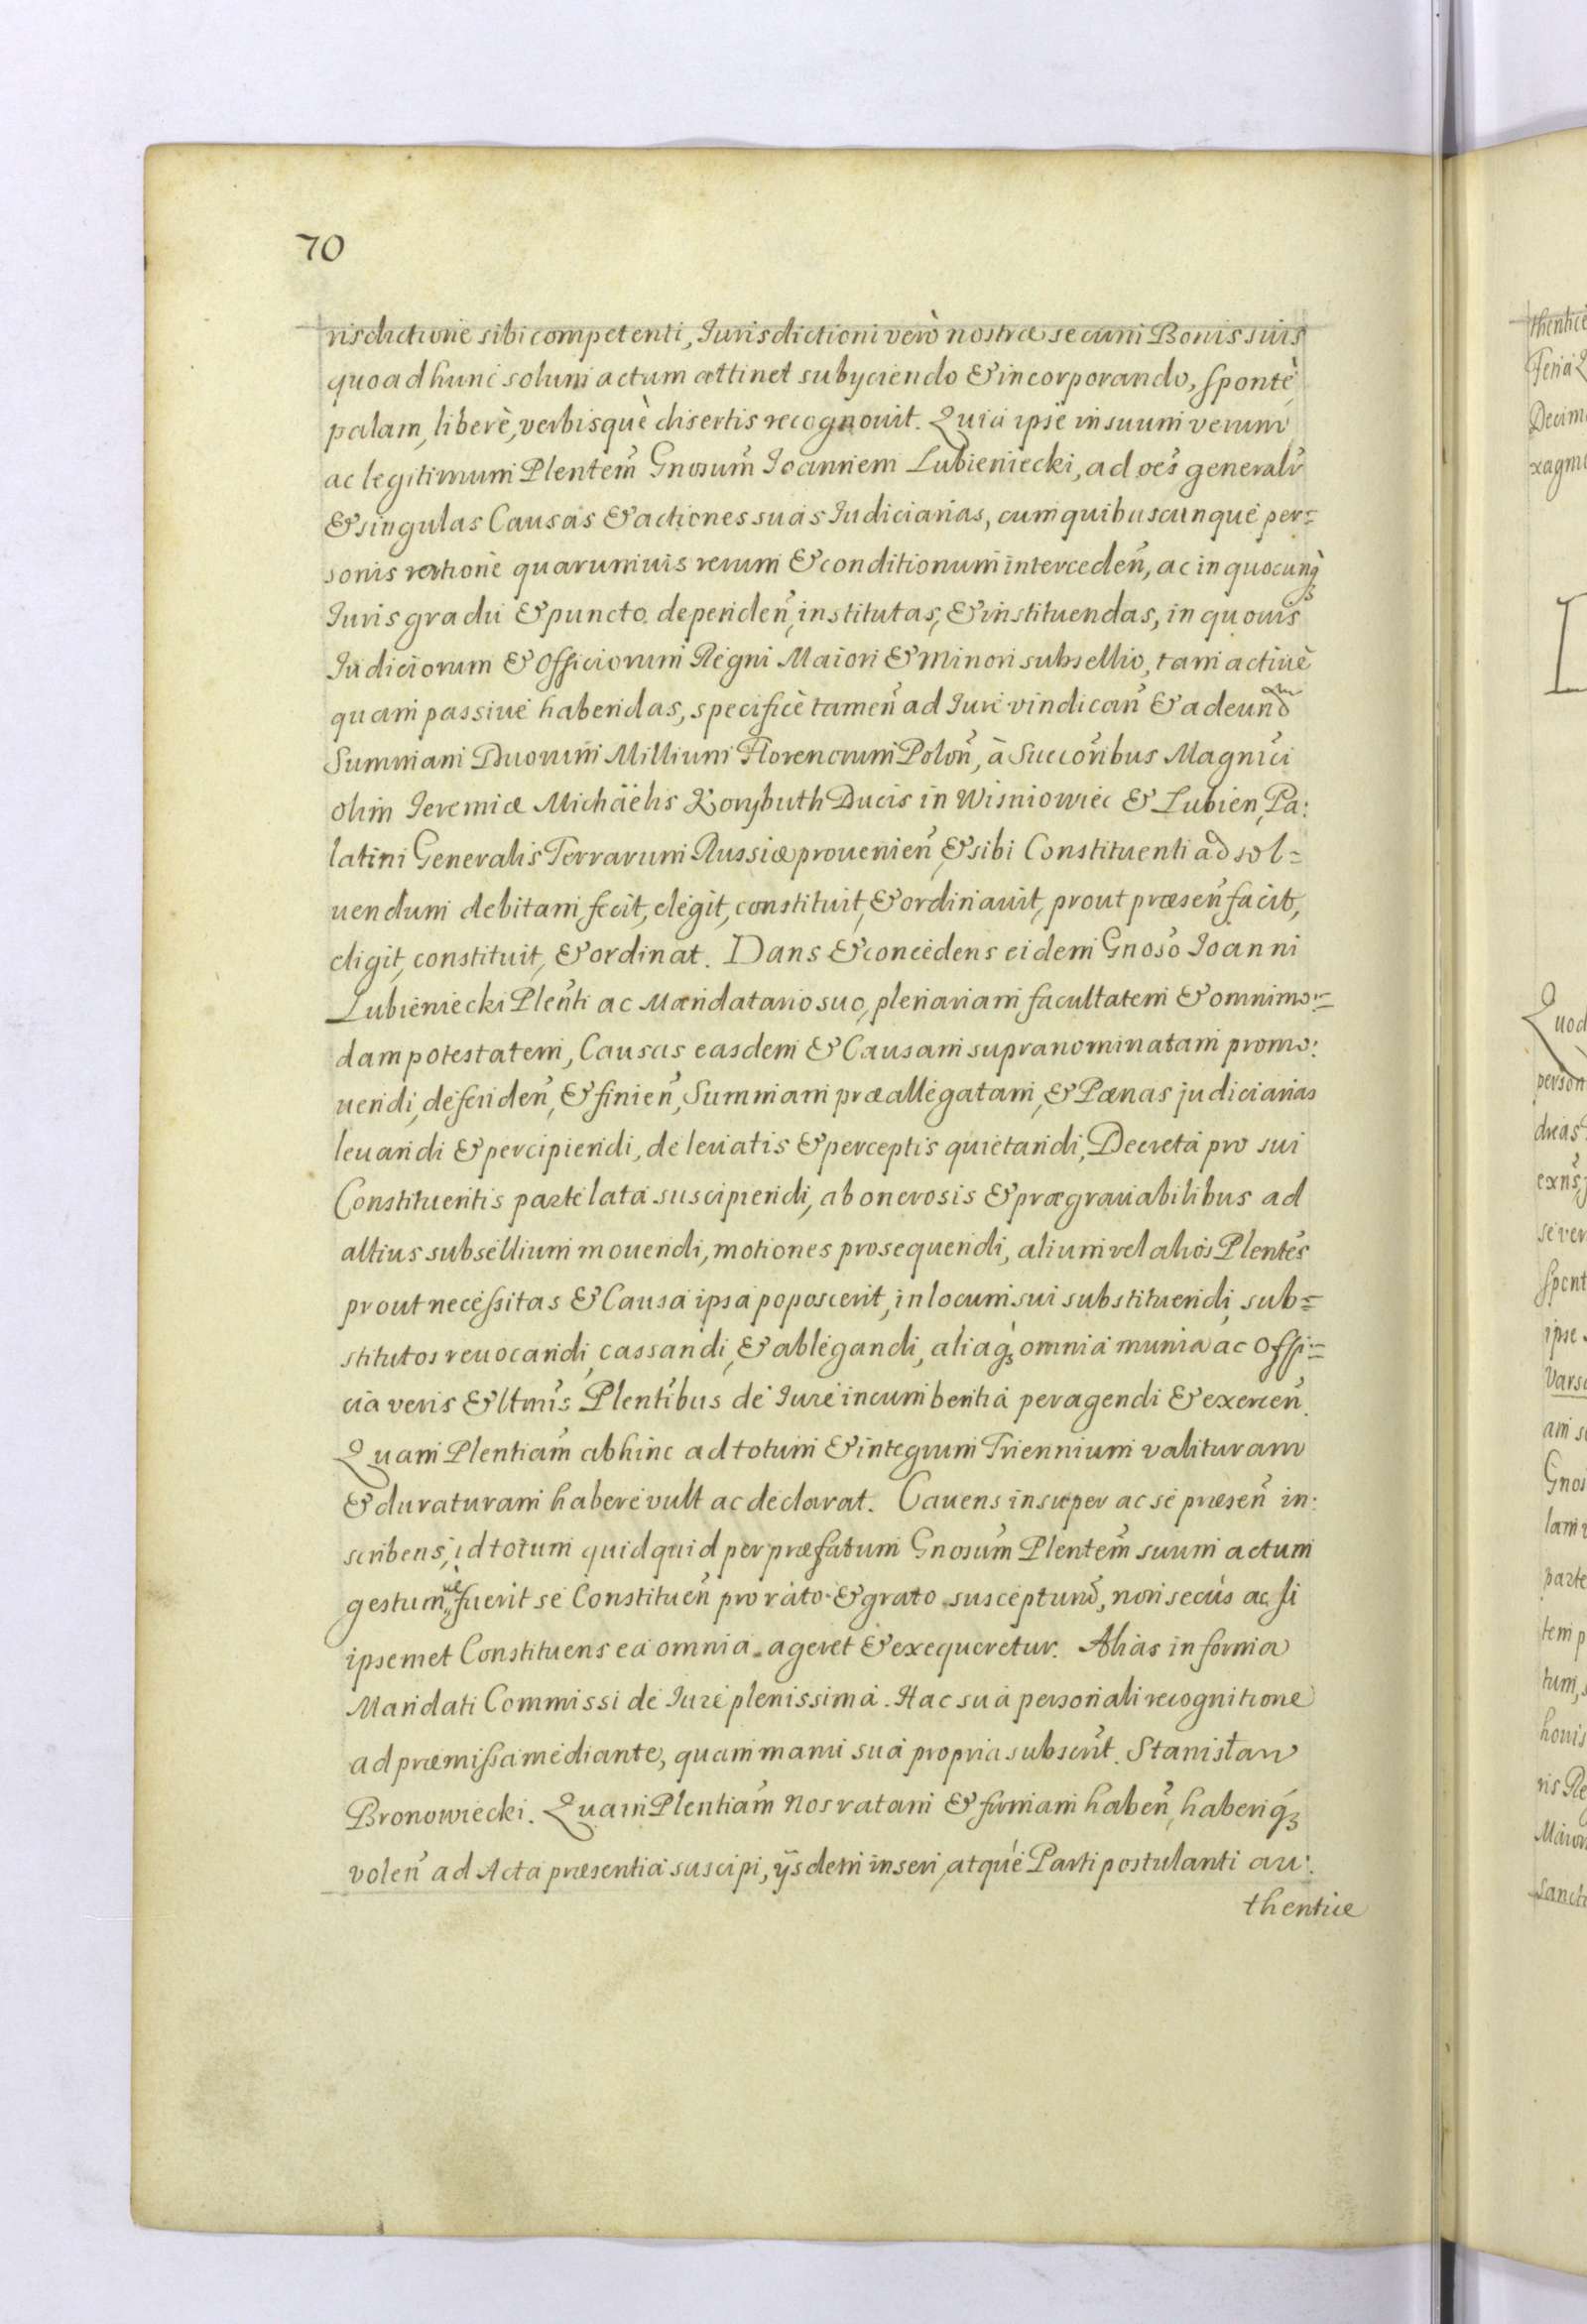 70
risdictione sibi competenti, Jurisdictioni verò nostræ se cum Bonis suis
quo ad hunc solum actum attinet subyciendo & incorporando, spontè,
palam, liberè, verbisquè disertis recognouit. Quia ipse in suum verum
ac legitimum Plentem̃ Gnosum̃ Joannem Lubieniecki, ad oes̃ generalr̃
& singulas Causas & actiones suas Judiciarias, cum quibuscunque per=
sonis ratione quarumuis rerum & conditionum interceden̄, ac in quocunq̀
Juris gradu & puncto dependen̄, institutas, & instituendas, in quouis
Judiciorum & Officiorum Regni Maiori & Minori subsellio, tam actiuè
quam passiuè habendas, specificè tamen̄ ad Jure vindican̄ & adeund
Summam Duorum Millium Florenorum Polon̄, à Succoribus Magn̄ci
olim Jeremiæ Michäelis Korybuth Ducis in Wisniowiec & Lubien, Pa:
latini Generalis Terrarum Russiæ prouenien̄, & sibi Constituenti ad sol=
uendum debitam, fecit, elegit, constituit, & ordinauit, prout præsen̄ facit,
eligit, constituit, & ordinat. Dans & concedens eidem Gnoso Joanni
Lubieniecki Plen̄ti ac Mandatario suo, plenariam facultatem & omnimo:=
dam potestatem, Causas easdem & Causam supranominatam promo:
uendi, defenden̄, & finien̄, Summam præallegatam, & Pænas judiciarias
leuandi & percipiendi, de leuatis & perceptis quietandi, Decreta pro sui
Constituentis parte lata suscipiendi, ab onerosis & prægrauabilibus ad
altius subsellium mouendi, motiones prosequendi, alium vel alios Plentes̃
prout necessitas & Causa ipsa poposcerit, in locum sui substituendi, sub=
stitutos reuocandi, cassandi, & ablegandi, aliaq̃ omnia munia ac Offi:=
cia veris & ltmis̃ Plentibus de Jure incumbentia peragendi & exercen̄.
Quam Plentiam̃ abhinc ad totum & integrum Triennium valituram
& duraturam habere vult ac declarat. Cauens insuper ac se præsen̄ in:
scribens, id totum quidquid per præfatum Gnosum̃ Plentem̃ suum actum
gestum uè fuerit se Constituen̄ pro rato & grato suscepturũ, non secùs ac si
ipsemet Constituens ea omnia ageret & exequeretur. Alias in forma
Mandati Commissi de Jure plenissima. Hac sua personali recognitione
ad præmissa mediante, quam manu sua propria subscrit̃. Stanisław
Bronowiecki. Quam Plentiam̃ Nos ratam & firmam haben̄, haberiq̃
volen̄ ad Acta præsentia suscipi, ijsdem inseri, atquè Parti postulanti au:
thentice